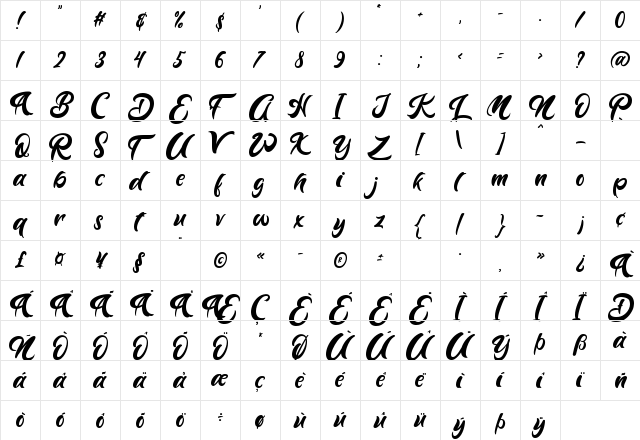 ! " # ¢ % $ ' ( ) * + , - . / 0
1 2 3 4 5 6 7 8 9 : ; < = > ? @
A B C D E F G H I J K L M N O P
Q R S T U V W X Y Z [ \ ] ^ _
a b c d e f g h i j k l m n o p
q r s t u v w x y z { | } ~ ¡ ¢
£ ¤ ¥ § © « ® ± · ¸ » ¿ À
Á Â Ã Ä Å Æ Ç È É Ê Ë Ì Í Î Ï Ð
Ñ Ò Ó Ô Õ Ö × Ø Ù Ú Û Ü Ý þ ß à
á â ã ä å æ ç è é ê ë ì í î ï ñ
ò ó ô õ ö ÷ ø ù ú û ü ý þ ÿ